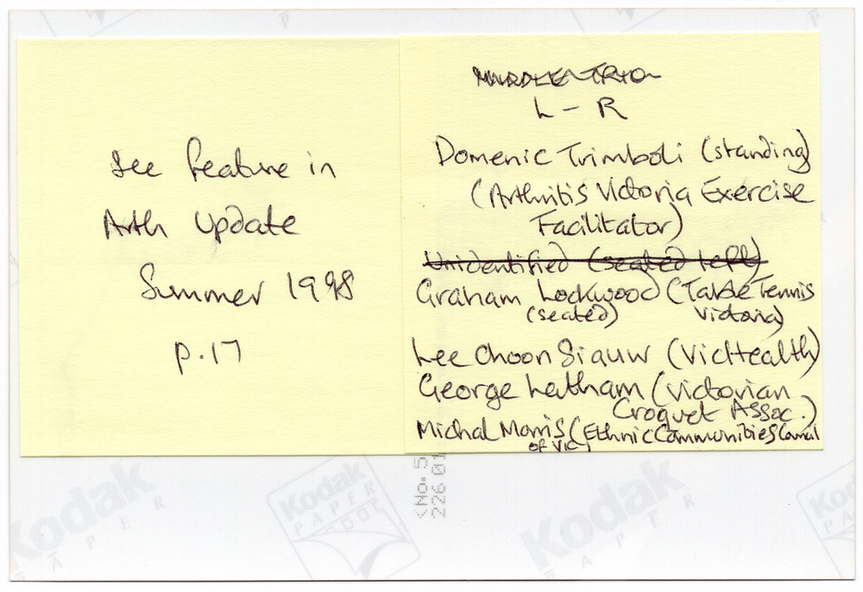 See feature in
Arth Update
Summer 1998
p.17
L - R
Domenic Trimboli (standing)
(Arthritis Victoria Exercise
Facilitator)
Unidentified (seated left)
Graham Lockwood (Table Tennis
(seated) Victoria)
Lee Choon Siauw (VicHealth)
George Latham (Victorian
Croquet Assoc.)
Michal Morris (Ethnic Communities Council
of Vic)
<No. 5
226 01
Kodak
PAPER
Kodak
PAPER
Kodak
PAPER